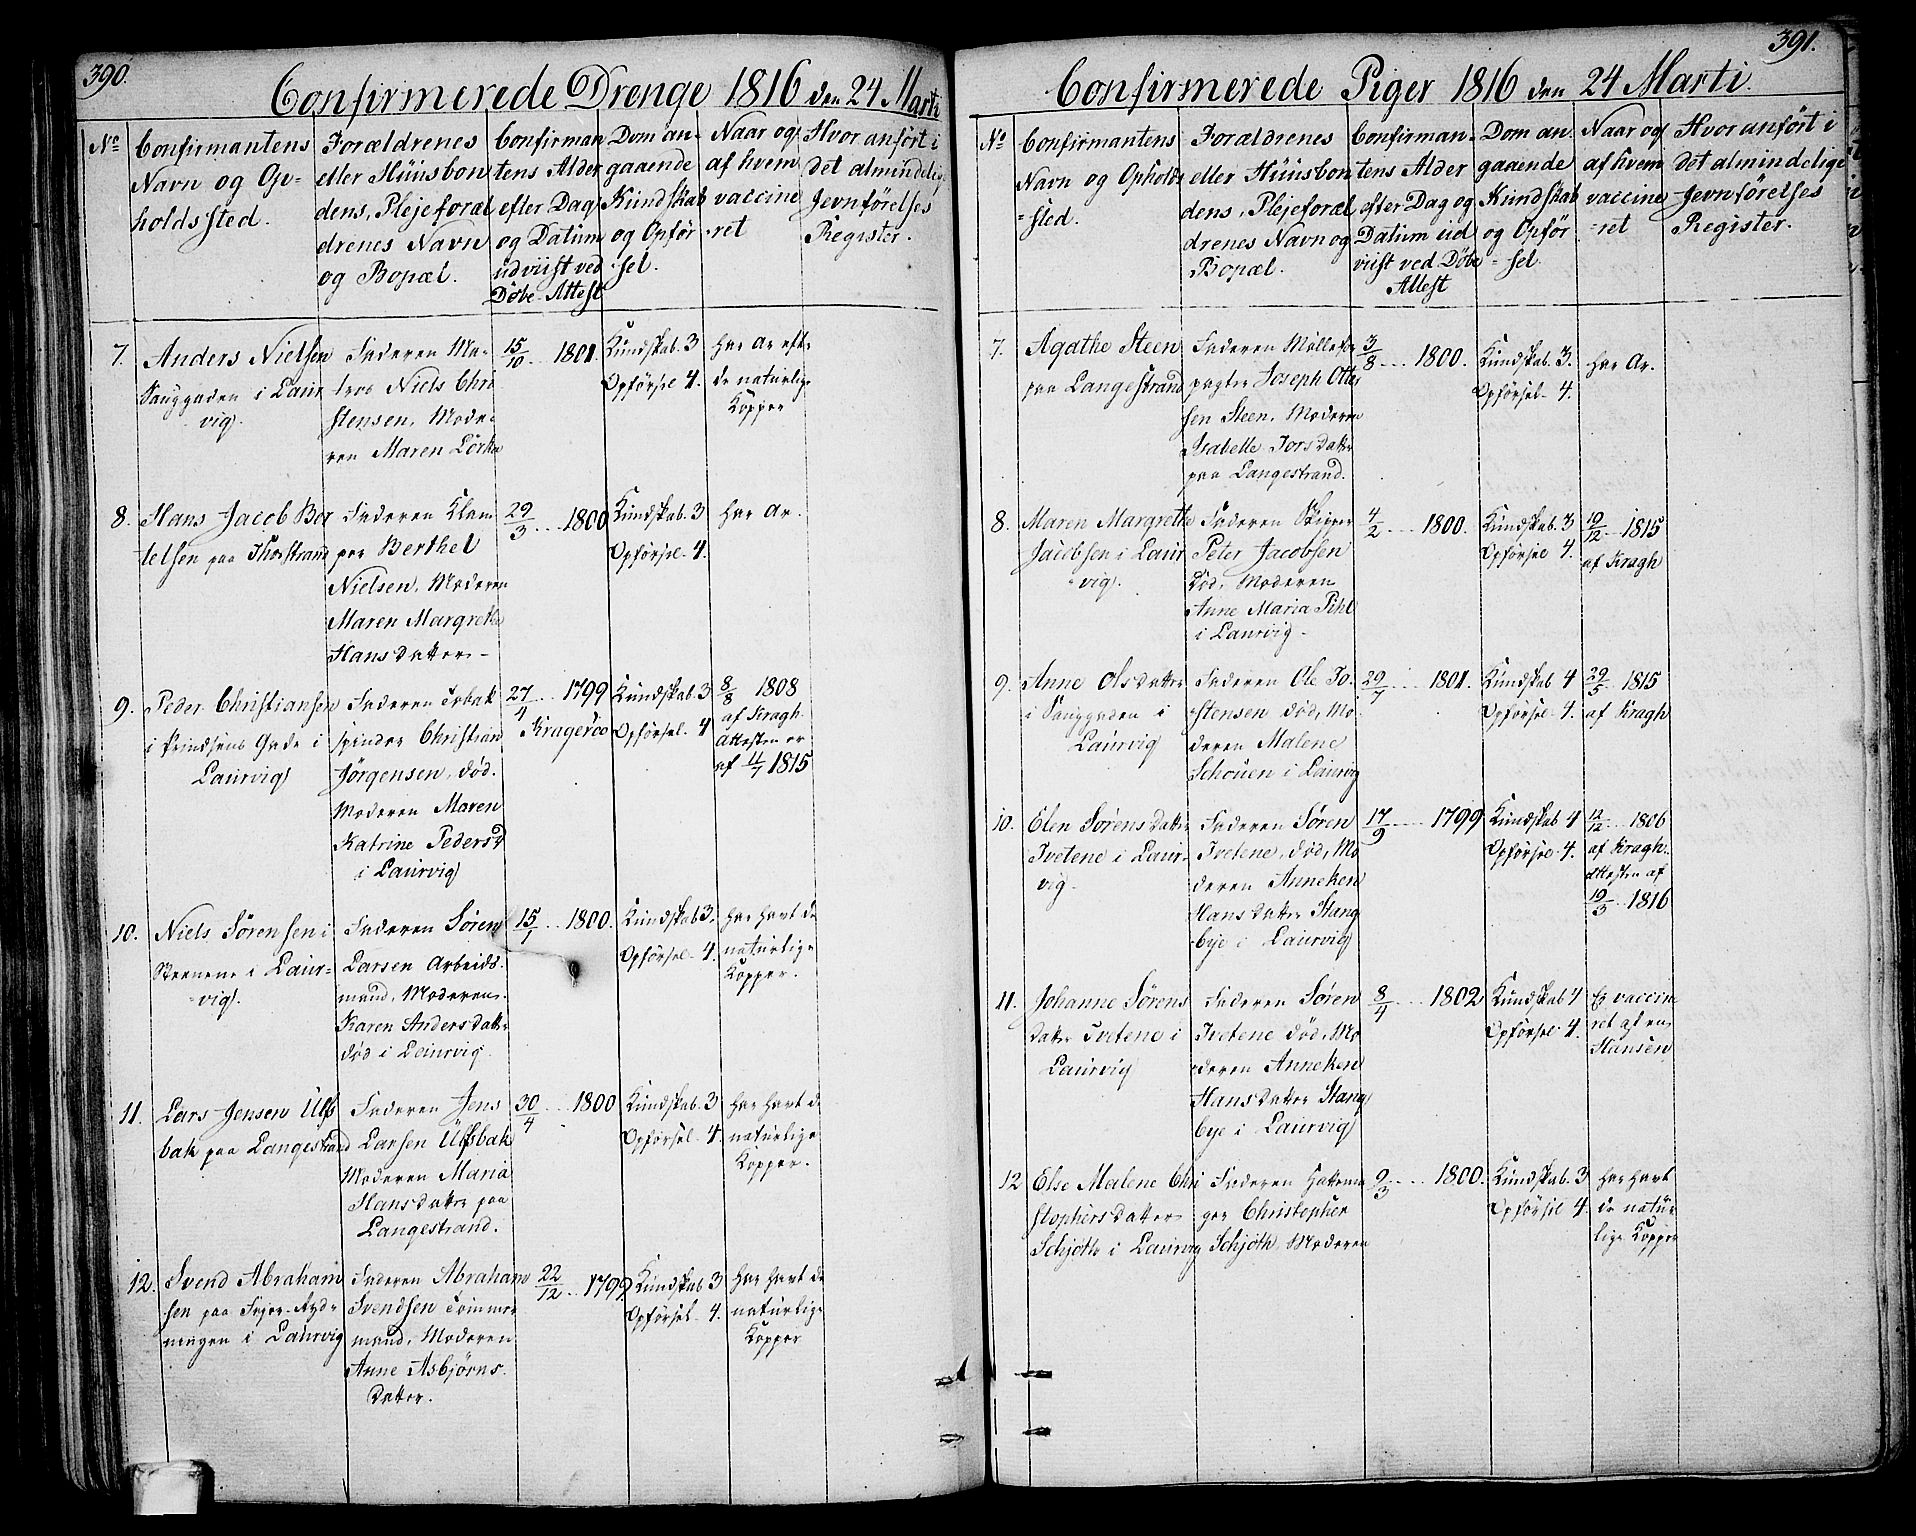 390.
Confirmerede Drenge 1816 den 24 Marti
No
Confirmantens
Navn og Op-
holdssted.
Forældrenes
eller Huusbon
dens, Plejeforæl
drenes Navn
og Bopæl.
Confirman
tens Alder
efter Dag
og Datum
udviist ved
Døbe-Attest
Dom an-
gaaende
Kundskab
og Opfør
-sel.
Naar og
af hvem
vaccine
-ret
Hvor anført i
det almindelig
Jevnførelses
Register.
7.
Anders Nielsen
i Laur
vig.
Faderen Ma-
tros Niels Chri
stensen, Mode-
ren Maren
15/10 .. 1801.
Kundskab. 3
Opførsel 4.
har Ar eft.
de naturlige
Kopper
8.
Hans Jacob Ber
telsen paa Thorstrand
Faderen
Berthel
Nielsen, Moderen
Maren Margrethe
Hansdatter-
29/3 ... 1800
Kundskab. 3
Opførsel. 4.
har Ar.
9.
Peder Christiansen
i Prindsens Gade i
Laurvig
Faderen Tobak
spinder Christian
Jörgensen, død.
Moderen Maren
Katrine Pedersd
i Laurvig
27/4 ... 1799
Krageröe
Kundskab. 3
Opførsel. 4
8/8 1808
af Kragh
Attesten er
af 11/7 1815
10.
Niels Sörensen i
Steenene i Laur-
vig.
Faderen Sören
Larsen Arbeids-
mand, Moderen
Karen Andersdatter
död i Laurvig.
15/1 ... 1800.
Kundskab 3.
Opførsel. 4.
har havt de
naturlige
Kopper.
11.
Lars Jensen Ulfs
bak paa Langestrand
Faderen Jens
Larsen Ulfsbak
Moderen Maria
Hansdatter paa
Langestrand.
30/4 ... 1800
Kundskab. 3
Opførsel. 4.
har havt de
naturlige
Kopper.
12.
Svend Abraham
sen paa
i Laurvig
Faderen Abraham
Svendsen Tömmer
mand, Moderen
Anne Asbjörns.
datter.
22/12 .. 1799
Kundskab 3
Opførsel. 4.
har havt de
naturlige
Kopper
391.
Confirmerede Piger 1816 den 24 Marti.
No
Confirmantens
Navn og Opholds
-sted.
Forældrenes
eller Huusbon
dens, Plejeforæl
drenes Navn og
Bopæl.
Confirman-
tens Alder
efter Dag og
Datum ud
viist ved Døbe
Attest
Dom an.
gaaende
Kundskab
og Opfør
-sel
Naar og
af hvem
vaccine
-ret
Hvor anført i
det almindelige
Jevnførelses
Register.
7.
Agathe Steen
paa Langestrand
Faderen Möllefor
pagter Joseph Otte
sen Steen, Moderen
Isabelle Jorsdatter
paa Langestrand.
3/8 ... 1800.
Kundskab. 3.
Opførsel. 4.
har Ar.
8.
Maren Margrethe
Jacobsen i Laur
vig.
Faderen Skipper
Peter Jacobsen
död, Moderen
Anne Maria Pihl
i Laurvig.
4/2 ... 1800.
Kundskab. 3
Opførsel 4.
19/12 ... 1815
af Kragh
9.
Anne Olsdatter
i
Laurvig
Faderen Ole To.
stensen död, Mo
deren Malene
Schouen i Laurvig
29/7 ... 1801.
Kundskab 4
Opførsel. 4.
29/5 .. 1815
af Kragh
10.
Elen Sörensdatter
Tvetene i Laur-
vig.
Faderen Sören
Tvetene, död, Mo
deren Anneken
Hansdatter Stang
bye i Laurvig
17/9 ... 1799
Kundskab 4
Opførsel. 4.
12/12 ... 1806
af Kragh.
Attesten af
19/3 .. 1816
11.
Johanne Sörens
datter Tvetene i
Laurvig
Faderen Sören
Tvetene död, Mo
deren Anneken
Hansdatter Stang
bye i Laurvig
8/4 ... 1802
Kundskab 4
Opførsel. 4.
Er vaccin
ret af en
Hansen
12
Else Malene Chri
stophersdatter
Schjöth i Laurvig
Faderen Hattema
ger Christopher
Schjöth, Moderen
9/3 ... 1800.
Kundskab. 3
Opførsel 4.
har havt
de natur
lige Kopper